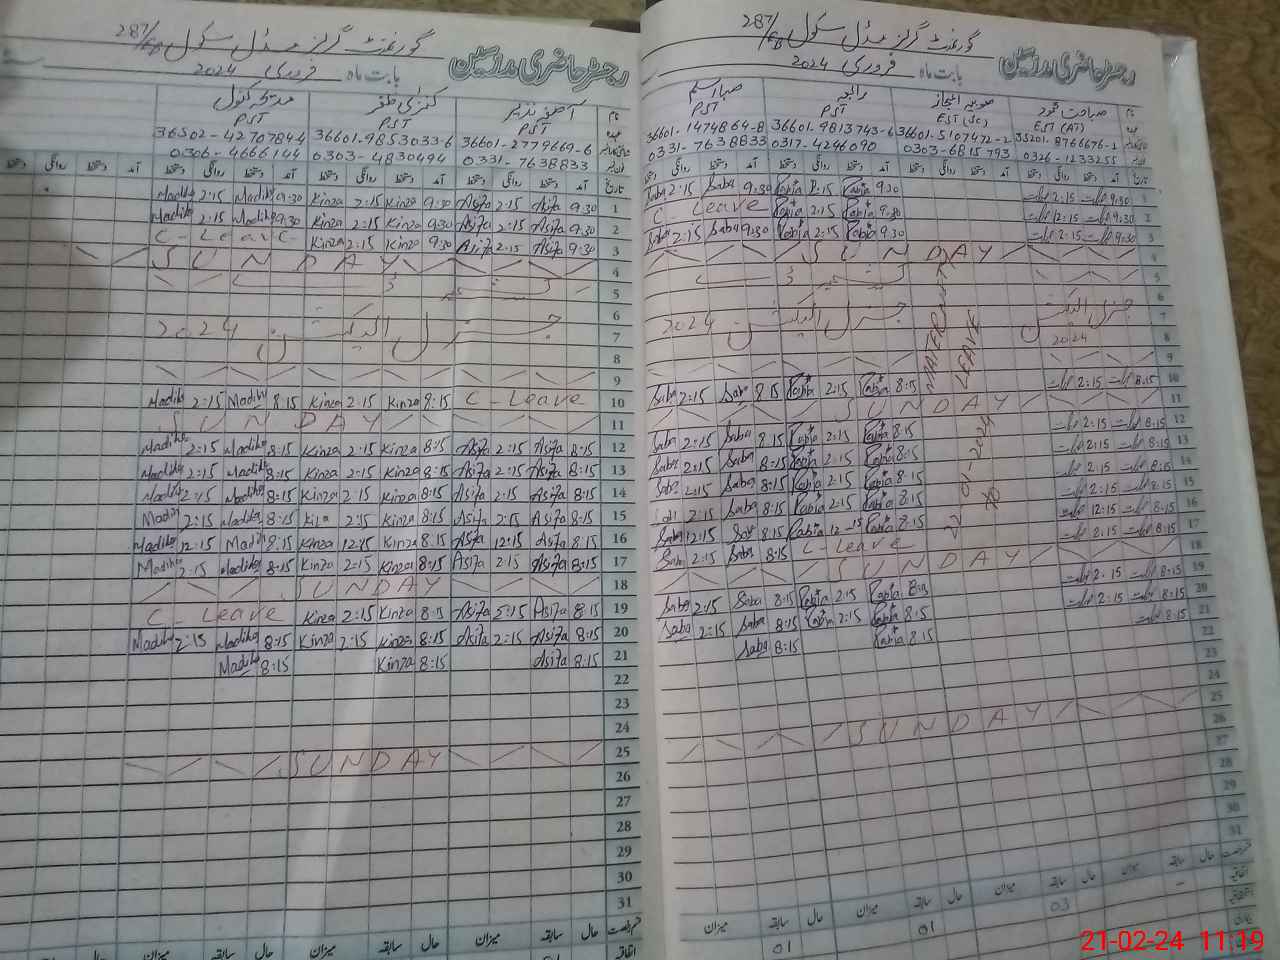 رجسٹر حاضری مدرسین گورنمنٹ گرلز مڈل سکول 287/EB
بابت ماہ فروری 2024
نام صباحت محمود صوبیہ امتیاز رابیہ صبا اسلم
EST (AT) EST (Sc) PST PST
35201-8766676-2 36601-5107472-2 36601-9813743-6 36601-1474864-8
0326-1233255 0303-6815793 0317-4246090 0331-7638833
تاریخ آمد دستخط روانگی دستخط آمد دستخط روانگی دستخط آمد دستخط روانگی دستخط آمد دستخط روانگی دستخط
1 9:30 2:15 9:30 Rabia 2:15 Rabia 9:30 Saba 2:15 Saba
2 9:30 12:15 9:30 Rabia 2:15 Rabia C-Leave
3 9:30 2:15 9:30 Rabia 2:15 Rabia 9:30 Saba 2:15 Saba
4 SUNDAY
5
6
7 جنرل الیکشن 2024 جنرل الیکشن 2024
8
9
10 8:15 2:15 8:15 Rabia 2:15 Rabia 8:15 Saba 2:15 Saba
11 SUNDAY
12 8:15 2:15 8:15 Rabia 2:15 Rabia 8:15 Saba 2:15 Saba
13 8:15 2:15 8:15 Rabia 2:15 Rabia 8:15 Saba 2:15 Saba
14 8:15 2:15 8:15 Rabia 2:15 Rabia 8:15 Saba 2:15 Saba
15 8:15 2:15 8:15 Rabia 2:15 Rabia 8:15 Saba 2:15
16 8:15 12:15 8:15 Rabia 12:15 Rabia 8:15 12:15 Saba
17 8:15 2:15 C-Leave 8:15 Saba 2:15 Saba
18 SUNDAY
19 8:15 2:15 8:15 Rabia 2:15 Rabia 8:15 Saba 2:15 Saba
20 8:15 2:15 8:15 Rabia 2:15 Rabia 8:15 Saba 2:15 Saba
21 8:15 8:15 Rabia 8:15 Saba
22
23
24
25 SUNDAY
26
27
28
29
30
31
MATERNITY LEAVE
22-01-2024
حال سابقہ میزان حال سابقہ میزان حال سابقہ میزان حال سابقہ میزان
اتفاقیہ 03 01 01
رجسٹر حاضری مدرسین گورنمنٹ گرلز مڈل سکول 287/EB
بابت ماہ فروری 2024
نام آصفہ نذیر کنزیٰ ظفر مدیحہ کنول
PST PST PST
36601-2779669-6 36601-9853033-6 36502-4270784-4
0331-7638833 0303-4830494 0306-4666144
تاریخ آمد دستخط روانگی دستخط آمد دستخط روانگی دستخط آمد دستخط روانگی دستخط آمد دستخط روانگی دستخط
1 9:30 Asifa 2:15 Asifa 9:30 Kinza 2:15 Kinza 9:30 Madiha 2:15 Madiha
2 9:30 Asifa 2:15 Asifa 9:30 Kinza 2:15 Kinza 9:30 Madiha 2:15 Madiha
3 9:30 Asifa 2:15 Asifa 9:30 Kinza 2:15 Kinza C-Leave
4 SUNDAY
5
6
7 جنرل الیکشن 2024
8
9
10 C-Leave 8:15 Kinza 2:15 Kinza 8:15 Madiha 2:15 Madiha
11 SUNDAY
12 8:15 Asifa 2:15 Asifa 8:15 Kinza 2:15 Kinza 8:15 Madiha 2:15 Madiha
13 8:15 Asifa 2:15 Asifa 8:15 Kinza 2:15 Kinza 8:15 Madiha 2:15 Madiha
14 8:15 Asifa 2:15 Asifa 8:15 Kinza 2:15 Kinza 8:15 Madiha 2:15 Madiha
15 8:15 Asifa 2:15 Asifa 8:15 Kinza 2:15 Kinza 8:15 Madiha 2:15 Madiha
16 8:15 Asifa 12:15 Asifa 8:15 Kinza 12:15 Kinza 8:15 Madiha 12:15 Madiha
17 8:15 Asifa 2:15 Asifa 8:15 Kinza 2:15 Kinza 8:15 Madiha 2:15 Madiha
18 SUNDAY
19 8:15 Asifa 2:15 Asifa 8:15 Kinza 2:15 Kinza C-Leave
20 8:15 Asifa 2:15 Asifa 8:15 Kinza 2:15 Kinza 8:15 Madiha 2:15 Madiha
21 8:15 Asifa 8:15 Kinza 8:15 Madiha
22
23
24
25 SUNDAY
26
27
28
29
30
31
حال سابقہ میزان حال سابقہ میزان حال سابقہ میزان حال
اتفاقیہ
21-02-24 11:19